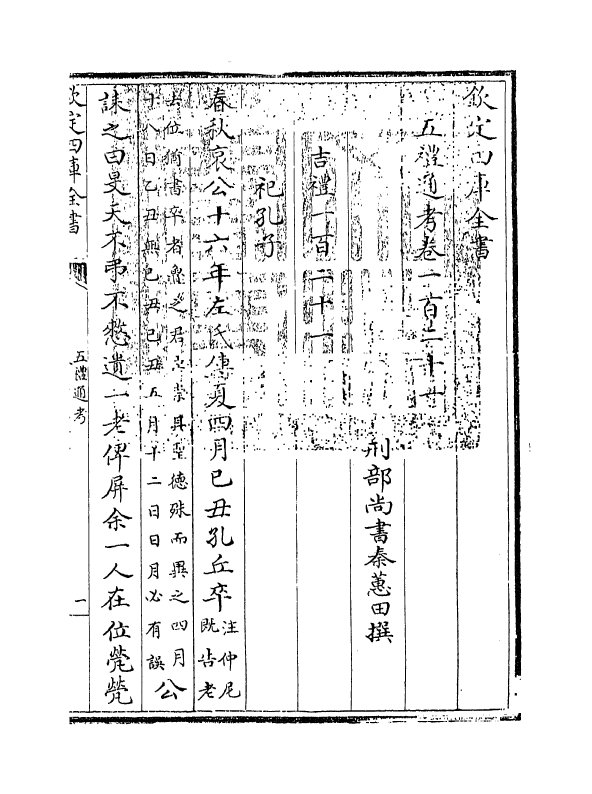 欽定四庫全書
五禮通考卷一百二十一
刑部尚書秦蕙田撰
吉禮一百二十一
祀孔子
春秋哀公十六年左氏傳夏四月己丑孔丘卒注仲尼既告老
去位猶書卒者魯之君臣宗其聖德殊而異之四月十八日乙丑無己丑己丑五月十二日日月必有誤公
誄之曰旻天不弔不憖遺一老俾屏余一人在位煢煢
欽定四庫全書
五禮通考
一